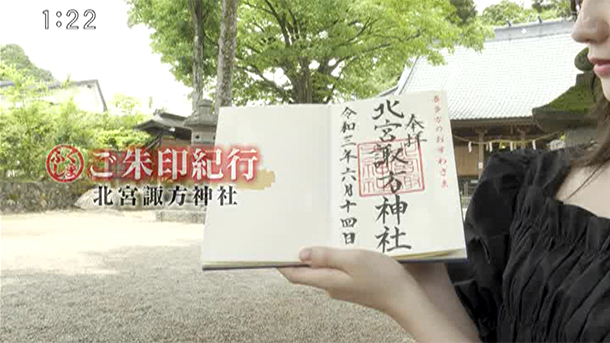 1:22
ふくしま
ご朱印紀行
北宮諏方神社
喜多方のおすわさま
奉拝
北宮諏方神社
令和三年六月十四日